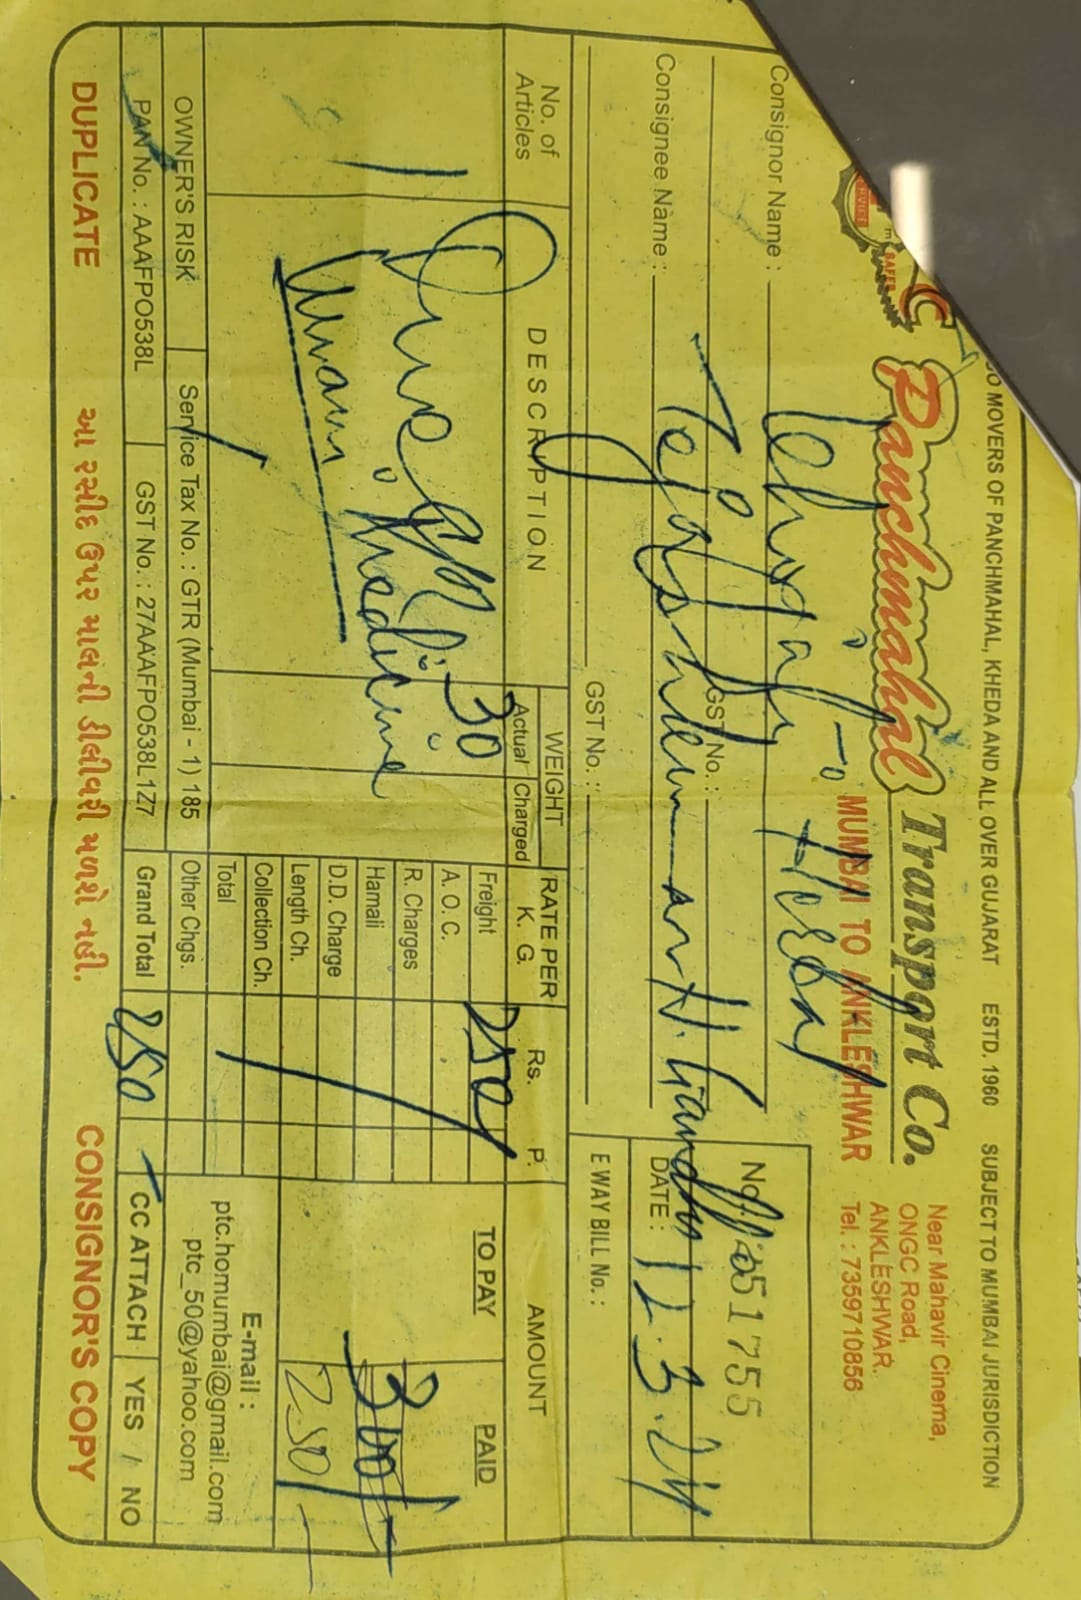 JO MOVERS OF PANCHMAHAL, KHEDA AND ALL OVER GUJARAT ESTD. 1960 SUBJECT TO MUMBAI JURISDICTION
Panchmahal Transport Co.
MUMBAI TO ANKLESHWAR
Near Mahavir Cinema,
ONGC Road,
ANKLESHWAR.
Tel. : 7359710856
Consignor Name : Herbal
GST No. :
No. 051755
Consignee Name : Gandhi
DATE : 12.3.24
GST No. :
E WAY BILL No. :
No. of Articles
DESCRIPTION
WEIGHT
Actual Charged
RATE PER K. G.
Rs. P.
AMOUNT
TO PAY PAID
1
medicine
30
Freight 250
A. O. C.
R. Charges
Hamali 300/-
D.D. Charge
Length Ch. 250/-
Collection Ch.
Total
Other Chgs.
Grand Total 250
E-mail :
ptc.homumbai@gmail.com
ptc_50@yahoo.com
OWNER'S RISK Service Tax No. : GTR (Mumbai - 1) 185
PAN No. : AAAFPO538L GST No. : 27AAAFPO538L1Z1
CC ATTACH YES / NO
DUPLICATE આ રસીદ ઉપર માલની ડીલીવરી મળશે નહીં. CONSIGNOR'S COPY